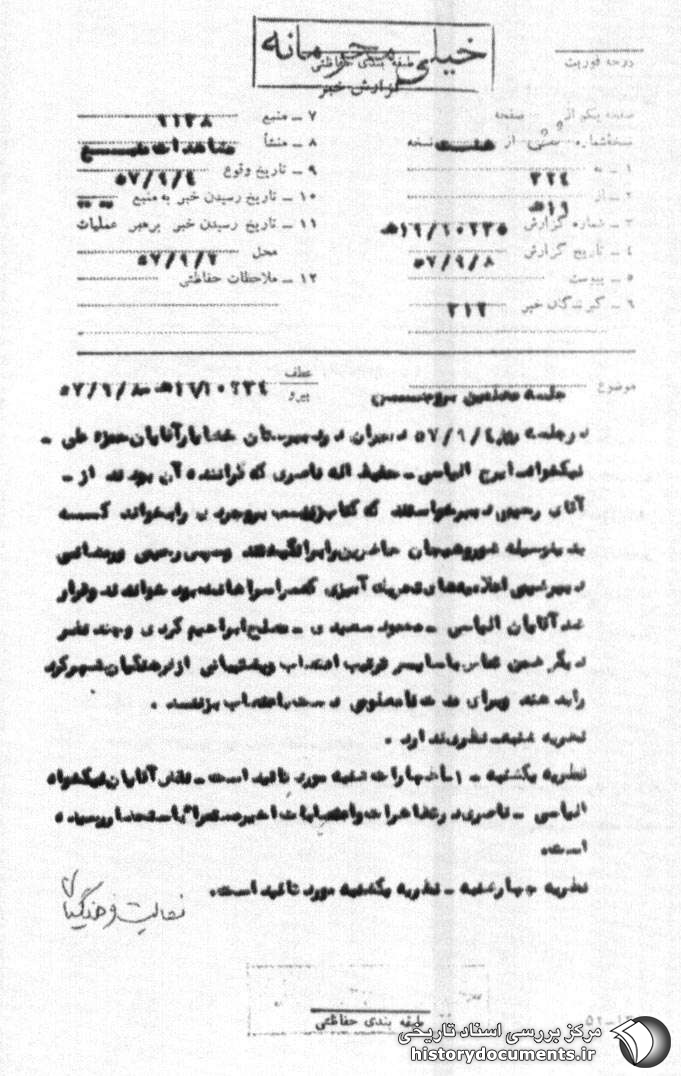 خیلی محرمانه
طبقه بندی حفاظتی
گزارش خبر
درجه فوریت
صفحه یکم از صفحه
نسخه شماره از هشت نسخه
۱ ـ به ۳۲۴
۲ ـ از ۱۹ه
۳ ـ شماره گزارش ۱۹/۱۰۲۳۵ه
۴ ـ تاریخ گزارش ۵۷/۹/۸
۵ ـ پیوست
۶ ـ گیرندگان خبر ۳۱۲
۷ ـ منبع ۹۱۳۸
۸ ـ منشأ مشاهدات منبع
۹ ـ تاریخ وقوع ۵۷/۹/۴
۱۰ ـ تاریخ رسیدن خبر به منبع
۱۱ ـ تاریخ رسیدن خبر برهبر عملیات
محل ۵۷/۹/۷
۱۲ ـ ملاحظات حفاظتی
موضوع جلسه معلمین بروجن
عطف
پیرو
در جلسه روز ۵۷/۹/۴ دبیران در دبیرستان خشایار آقایان حمزه علی ـ
نیکخواه ـ ایرج الیاسی ـ حفیظ اله ناصری که گرداننده آن بودند از ـ
آقای رحیمی دبیر خواستند که کتاب زینب بروجردی را بخواند که
بدینوسیله شور و هیجان حاضرین را برانگیختند و سپس رحیمی و رمضانی
دبیر شیمی اعلامیه‌های تحریک آمیزی که همراه داشته بود خواندند و قرار
شد آقایان الیاسی ـ محمود سعیدی ـ صلح ابراهیم کردی و چند نفر
دیگر ضمن تماس با سایرین ترتیب اعتصاب و پشتیبانی از فرهنگیان شهرکرد
را بدهند و برای مدت نامعلومی دست باعتصاب بزنند .
نظریه شنبه ـ نظری ندارد .
نظریه یکشنبه ـ ۱ـ اظهارات شنبه مورد تائید است ـ نقش آقایان نیکخواه
الیاسی ـ ناصری در تظاهرات و اعتصابات اخیر مستمراً باستحضار رسیده
است .
نظریه چهارشنبه ـ نظریه یکشنبه مورد تائید است .
فعالیت فرهنگیان
طبقه بندی حفاظتی
مرکز بررسی اسناد تاریخی
historydocuments.ir